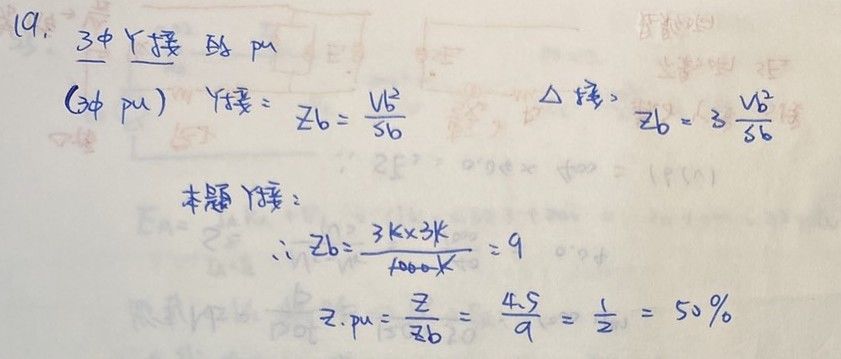 19. 3Φ Y接 的 pu
(3Φ pu) Y接: Zb = Vb²/Sb △接: Zb = 3 Vb²/Sb
本題 Y接:
∴ Zb = 3K×3K/1000K = 9
Z.pu = Z/Zb = 4.5/9 = 1/2 = 50%